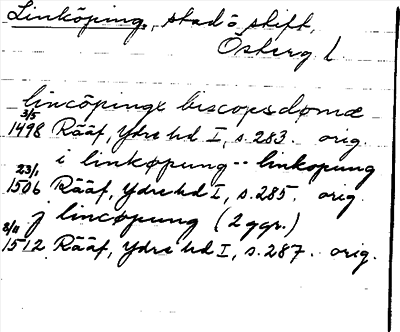 Linköping, stad o stift,
Österg l
lincöpingx biscopsdømæ
3/5
1498 Rääf, Ydre hd I, s. 283. orig.
i linkøpung -- linkopung
23/1
1506 Rääf, Ydre hd I, s. 285. orig.
j lincøpung (2 ggr.)
8/11
1512 Rääf, Ydre hd I, s. 287. orig.